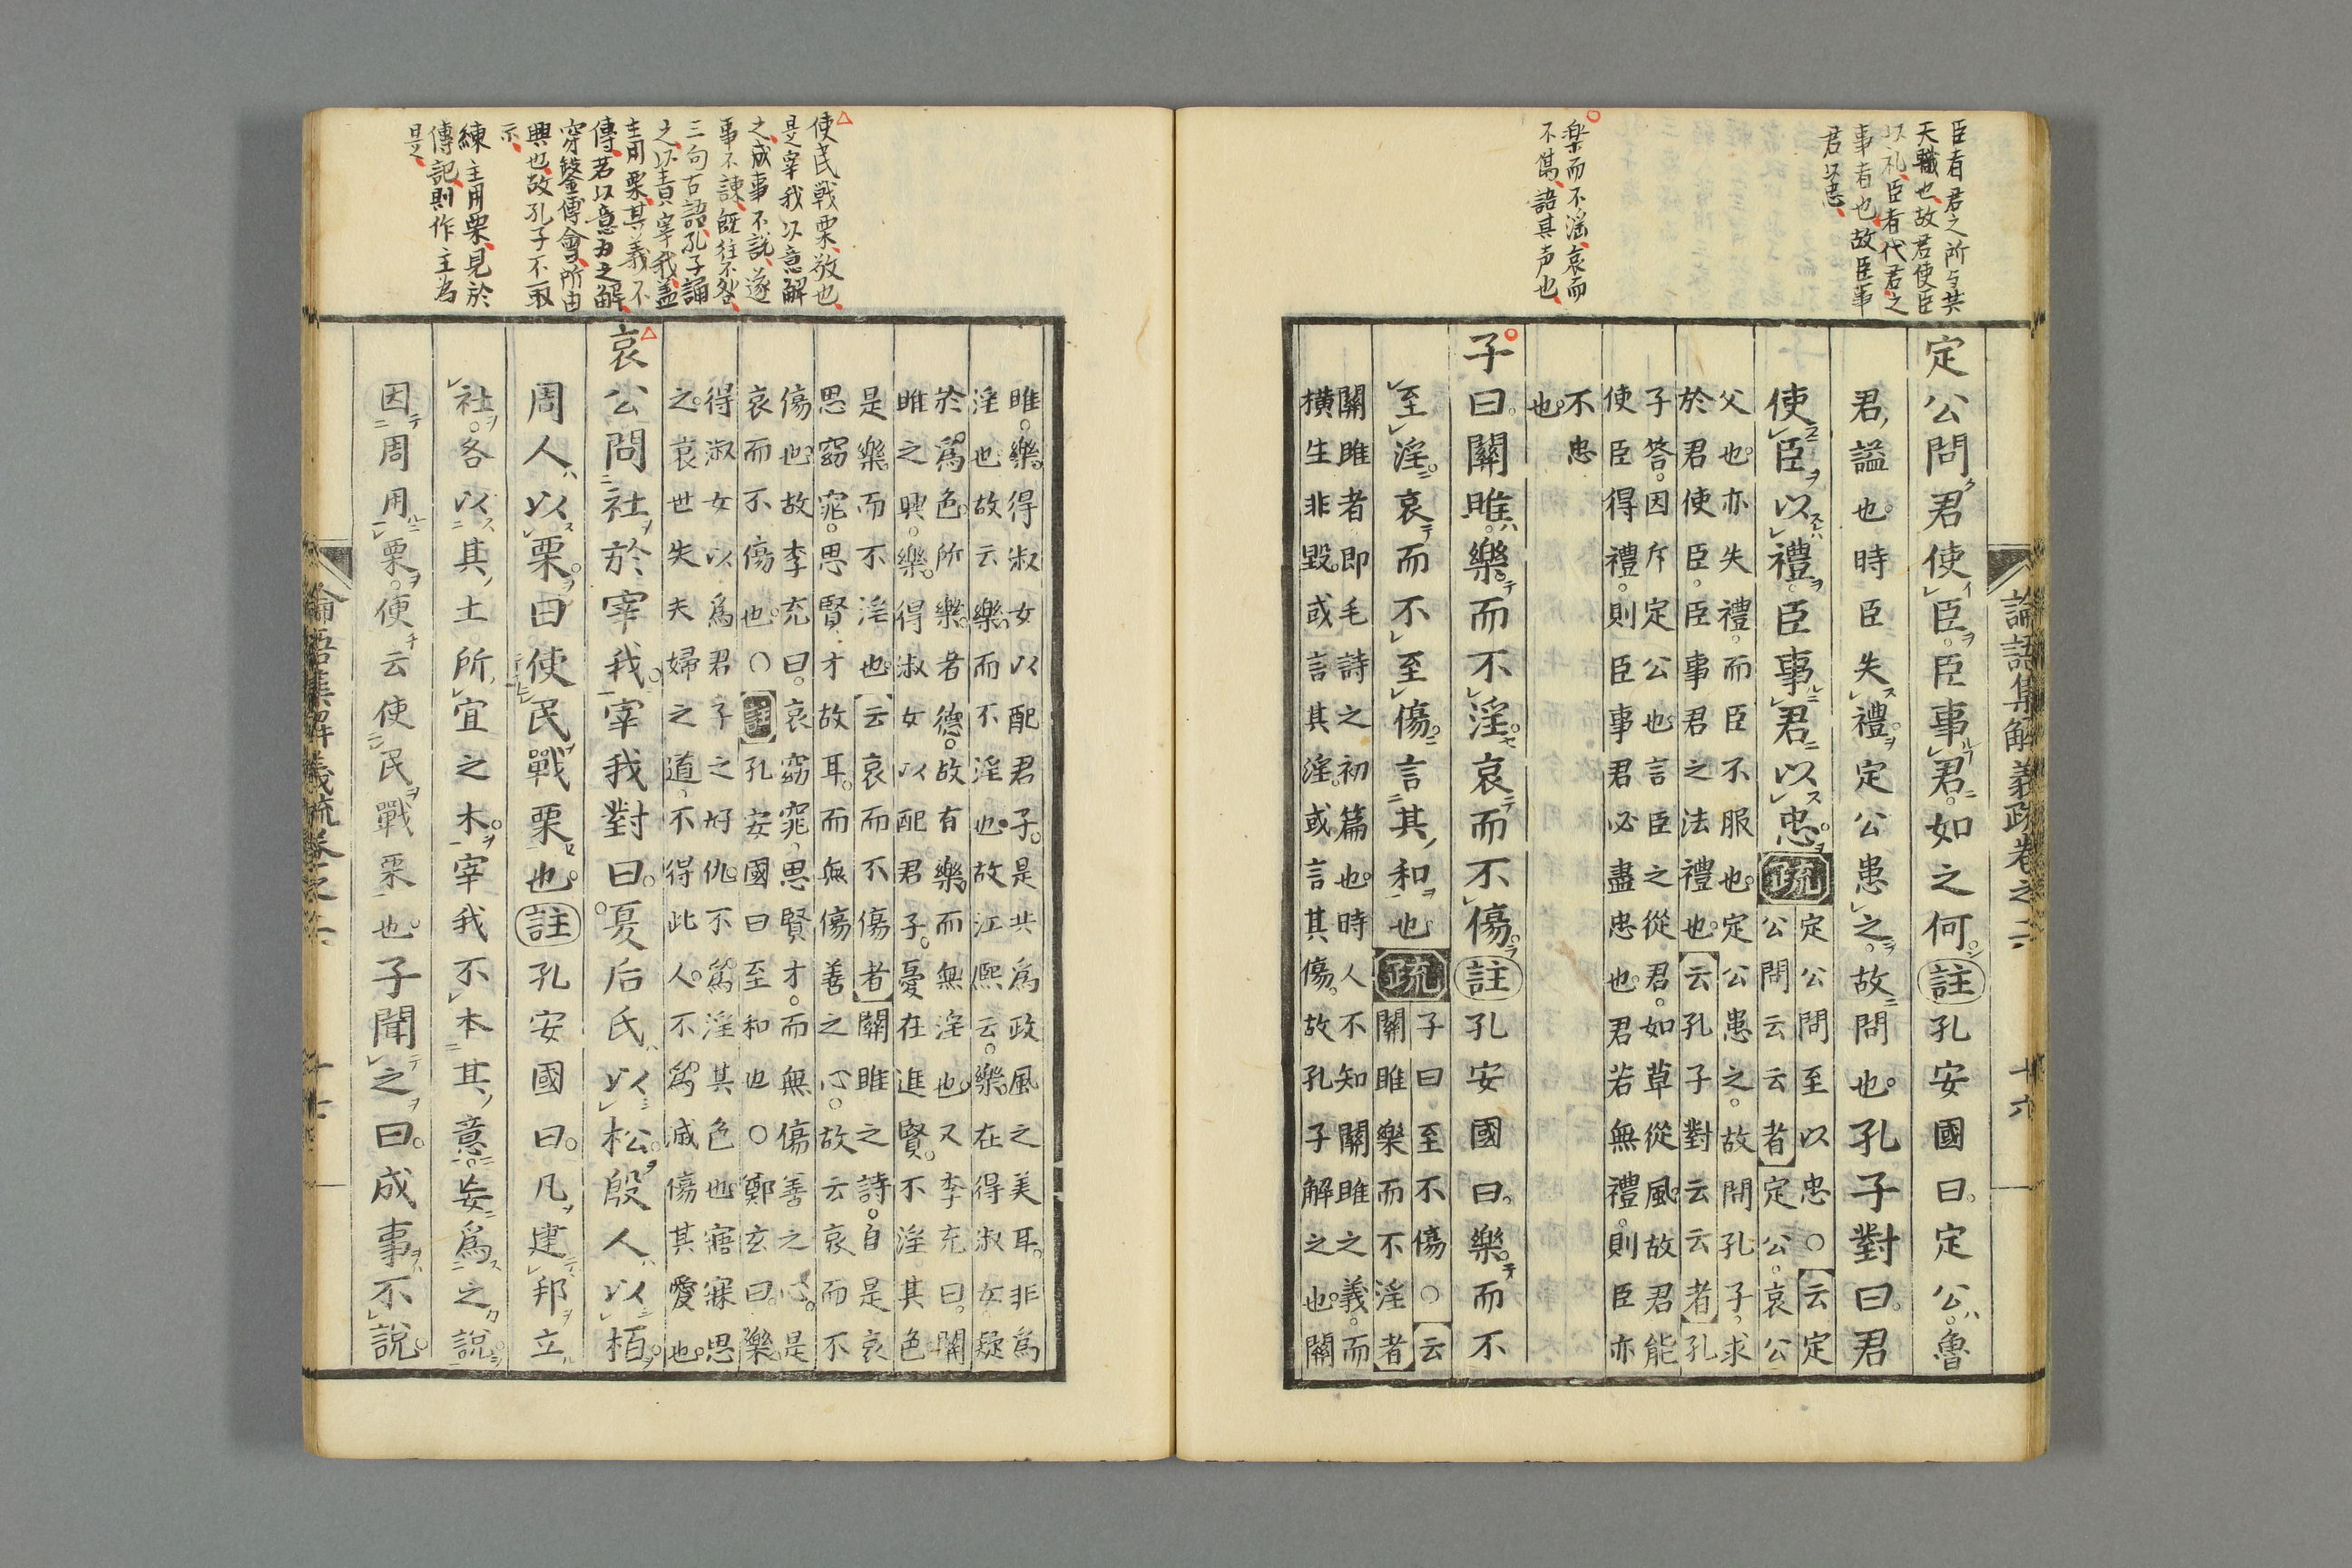 臣者君之所与共
天職也故君使臣
以礼臣者代君之
事者也故臣事
君以忠
楽而不淫哀而
不傷語其声也
論語集解義疏卷之二
十六
定公問君使臣臣事君如之何註孔安國曰定公魯
君謚也時臣失禮定公患之故問也孔子對曰君
使臣以禮臣事君以忠疏定公問至以忠○云定
公問云云者定公哀公
父也亦失禮而臣不服也定公患之故問孔子求
於君使臣臣事君之法禮也云孔子對云云者孔
子答因斥定公也言臣之從君如草從風故君能
使臣得禮則臣事君必盡忠也君若無禮則臣亦
不忠
也
子曰關雎樂而不淫哀而不傷註孔安國曰樂而不
至淫哀而不至傷言其和也疏子曰至不傷○云
關雎樂而不淫者
關雎者即毛詩之初篇也時人不知關雎之義而
橫生非毀或言其淫或言其傷故孔子解之也關
使民戰栗敬也
是宰我以意解
之成事不説遂
事不諫既往不咎
三句古語孔子誦
之以責宰我蓋
主用栗其義不
傳若以意为之解
穿鑿傳會所由
興也故孔子不取
示
練主用栗見於
傳記則作主為
是
雎樂得淑女以配君子是共爲政風之美耳非爲
淫也故云樂而不淫也故江熙云樂在得淑女疑
於爲色所樂者德故有樂而無淫也又李充曰關
雎之興樂得淑女以配君子憂在進賢不淫其色
是樂而不淫也云哀而不傷者關雎之詩自是哀
思窈窕思賢才故耳而無傷善之心故云哀而不
傷也故李充曰哀窈窕思賢才而無傷善之心是
哀而不傷也○註孔安國曰至和也○鄭玄曰樂
得淑女以爲君子之好仇不爲淫其色也寤寐思
之哀世失夫婦之道不得此人不爲減傷其愛也
哀公問社於宰我宰我對曰夏后氏以松殷人以栢
周人以栗曰使民戰栗也註孔安國曰凡建邦立
社各以其土所宜之木宰我不本其意妄爲之説
因周用栗便云使民戰栗也子聞之曰成事不說
論語集解義疏卷之二